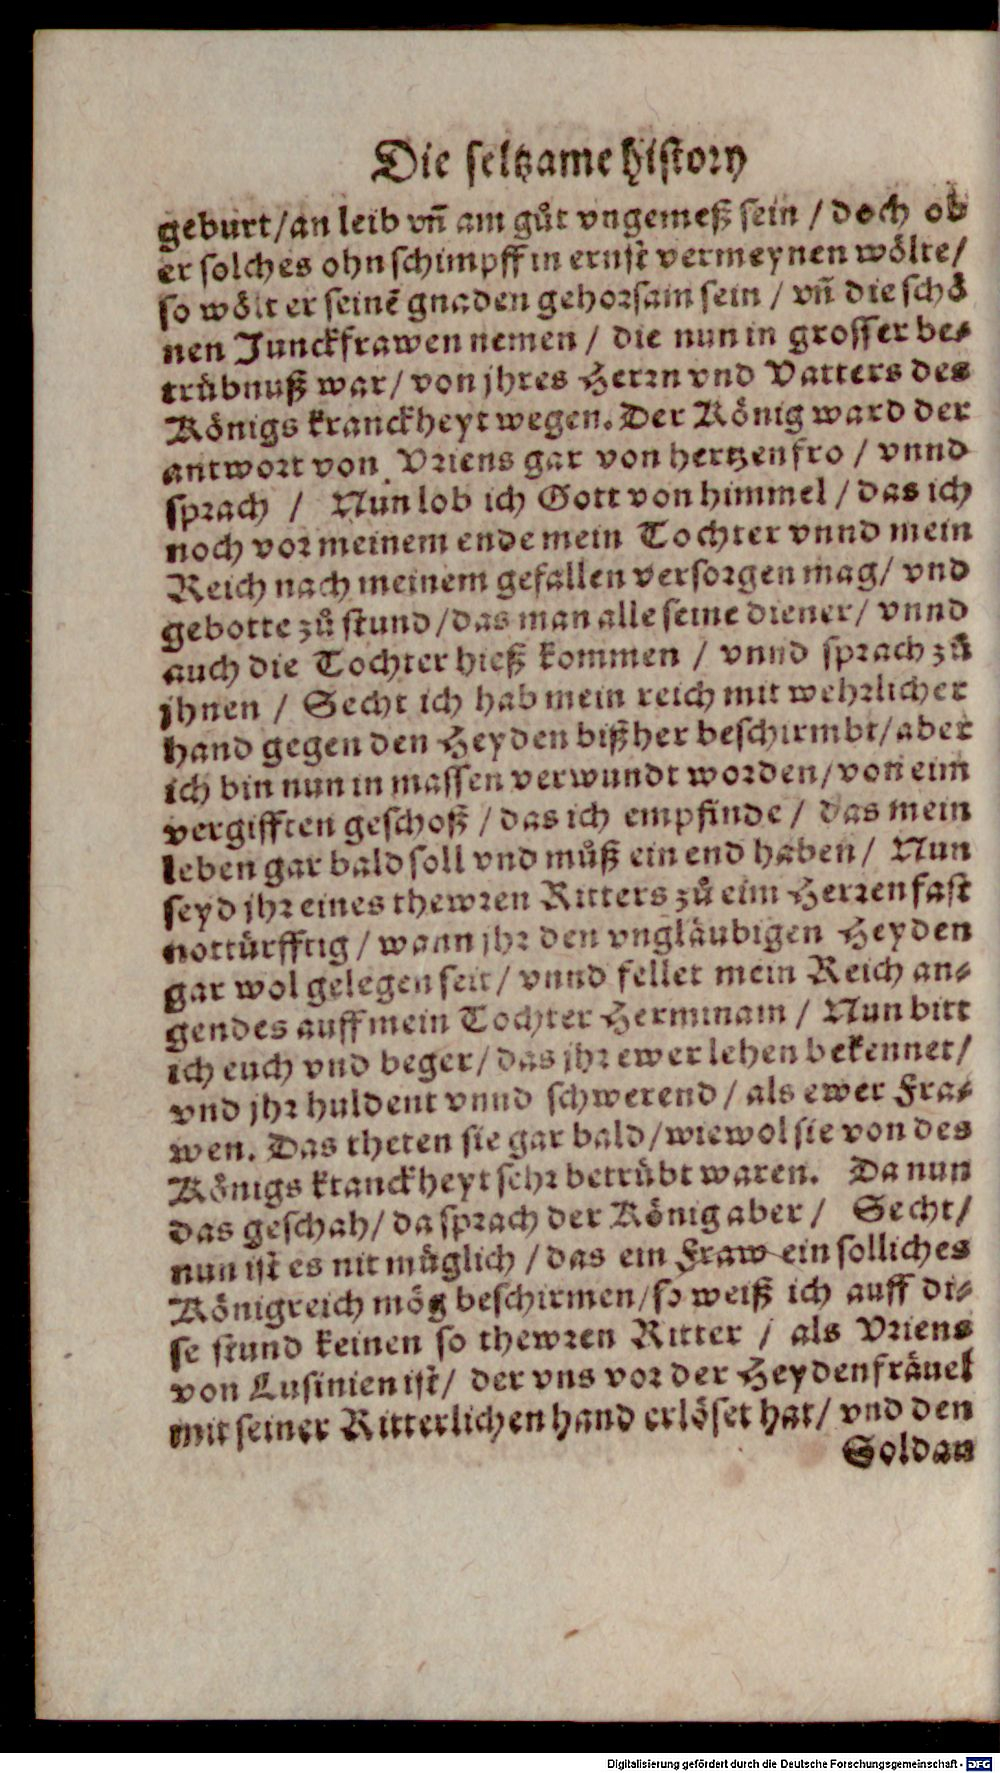 Die seltzame history
geburt/an leib vñ am gůt vngemeß sein / doch ob
er solches ohn schimpff in ernst vermeynen wölte/
so wölt er seinẽ gnaden gehorsam sein / vñ die schö
nen Junckfrawen nemen / die nun in grosser be⸗
trübnuß war/ von jhres Herrn vnd Vatters des
Königs kranckheyt wegen. Der König ward der
antwort von Vriens gar von hertzen fro / vnnd
sprach / Nun lob ich Gott von himmel / das ich
noch vor meinem ende mein Tochter vnnd mein
Reich nach meinem gefallen versorgen mag/ vnd
gebotte zů stund/das man alle seine diener/ vnnd
auch die Tochter hieß kommen / vnnd sprach zů
jhnen / Secht ich hab mein reich mit wehrlicher
hand gegen den Heyden bißher beschirmbt/aber
ich bin nun in massen verwundt worden/von eim
vergifften geschoß / das ich empfinde / das mein
leben gar bald soll vnd můß ein end haben/ Nun
seyd jhr eines thewren Ritters zů eim Herren fast
nottürfftig / wann jhr den vngläubigen Heyden
gar wol gelegen seit/ vnnd fellet mein Reich an⸗
gendes auff mein Tochter Herminam / Nun bitt
ich euch vnd beger/das jhr ewer lehen bekennet/
vnd jhr huldent vnnd schwerend / als ewer Fra⸗
wen. Das theten sie gar bald/wiewol sie von des
Königs kranckheyt sehr betrübt waren. Da nun
das geschah/ da sprach der König aber / Secht/
nun ist es nit müglich / das ein Fraw ein solliches
Königreich mög beschirmen/so weiß ich auff di⸗
se stund keinen so thewren Ritter / als Vriens
von Lusinien ist/ der vns vor der Heyden fräuel
mit seiner Ritterlichen hand erlöset hat/ vnd den
Soldan
Digitalisierung gefördert durch die Deutsche Forschungsgemeinschaft - DFG